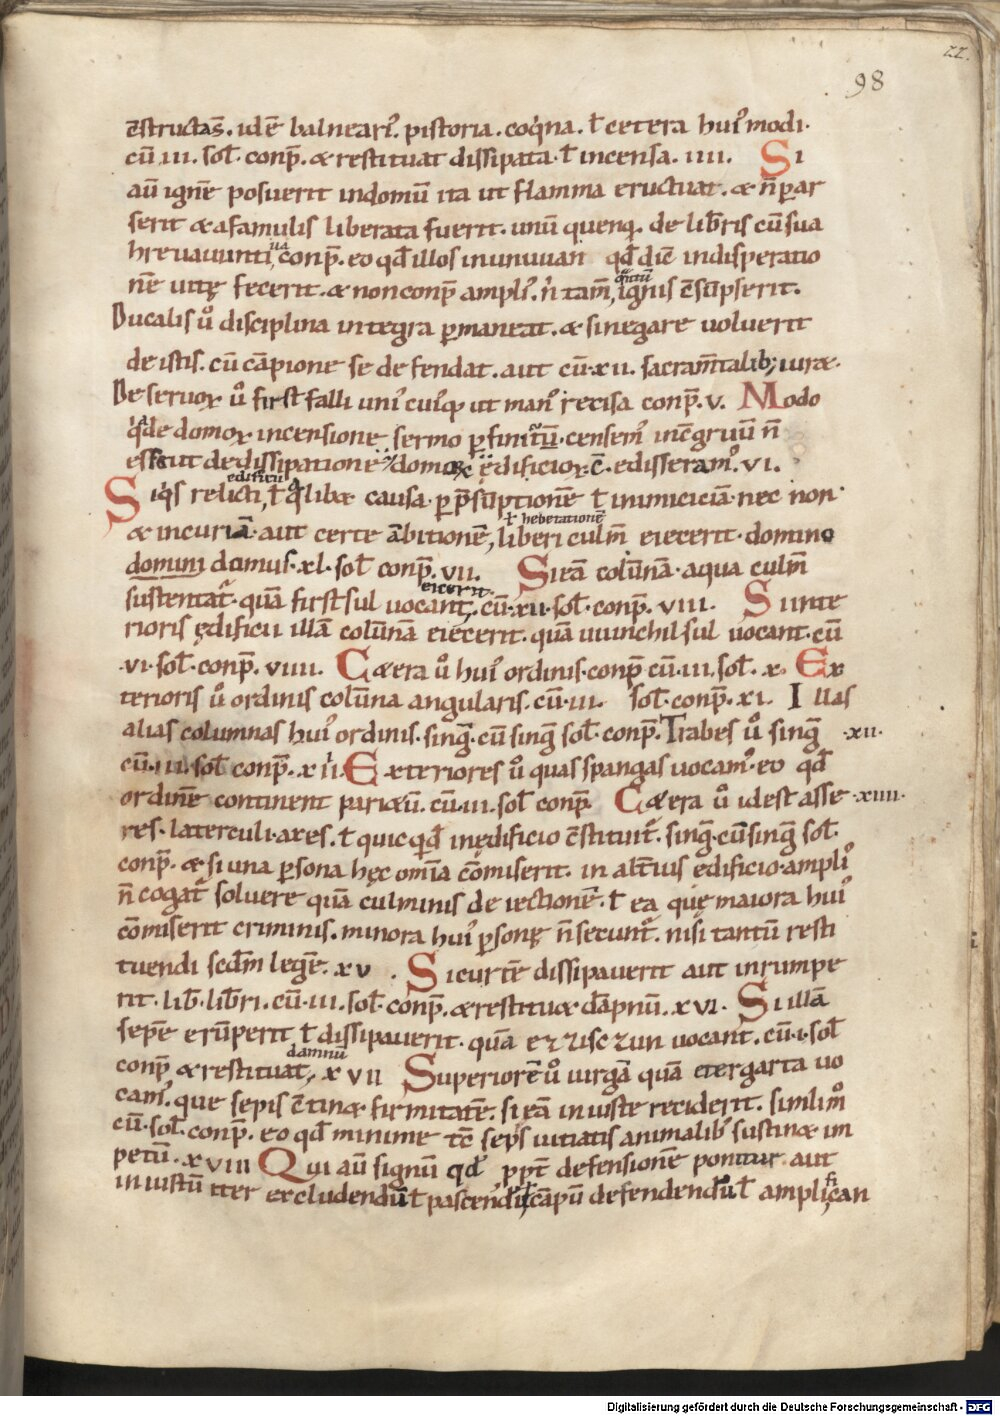 22.
98
c̄structas̄. idē balneariꝰ. pistoria. coqͥna. ł cetera huiꝰmodi.
cū .III. sol. conp̄. & restituat dissipata. ł incensa. IIII. Si
aū ignē posuerit indomū ita ut flamma eructuat. & n̄ ꝑar
serit & a famulis liberata fuerit. unū quenq. de lib̄ris cū sua
hreuauunti, conp̄. eo qđ illos inunuuan qđ diē indisperatio
ua
nē uitę fecerit. & non conp̄ ampliꝰ. n̄ tam̄, ignis c̄sūpserit.
qͣntū
Ducalis u᷎ disciplina integra ꝑmaneat. & si negare uoluerit
de istis. cū cāpione se defendat. aut cū .XII. sacram̄talib; iur&.
De seruoꝝ u᷎ first falli uniꝰcuiꝰqͥ ut manꝰ recisa conp̄. V. Modo
qͥa de domoꝝ incensione sermo ꝑfinitꝰ ū. censemꝰ incgruū n̄
esse ut de dissipatione domoꝝ & ędificioꝝ c̄. edisseramꝰ. VI.
Siqͥs relicti, ł qͣlib& causa. ꝑ p̄sūptionē ł inimiciciā. nec non
edificii
& incuriā. aut certe ābitionē, liberi culm̄ eiecerit. domino
ł hebetationē
domini domus. XL. sol conp̄. VII. Si eā colūnā. aqua culm̄
sustentat᷑. quā firstsul uocant, cū .XII. sol. conp̄. VIII. Si inte
eicerit.
rioris ędificii illā colūnā eiecerit. quā uuinchilsul uocant. cū
.VI. sol. conp̄. VIIII. C&era u᷎ huiꝰ ordinis. conp̄ cū .III. sol. X. Ex
terioris u᷎ ordinis colūna angularis. cū .III. sol. conp̄. XI. Illas
alias columnas huiꝰ ordinis. sinḡ. cū sinḡ sol. conp̄. Trabes u᷎ sinḡ .XII.
cū .III. sol. conp̄. XII. Exteriores u᷎ quas spangas uocamꝰ. eo qđ
ordinē continent pari&ū. cū .III. sol conp̄. C&era u᷎ id est asse .XIIII.
res. laterculi. axes. ł quicqͥđ inędificio c̄stituit᷑. sinḡ. cū sinḡ sol.
conp̄. & si una ꝑsona hęc om̄ia cōmiserit. in alt̄ius edificio. ampliꝰ
n̄ cogat᷑ soluere quā culminis deiectionē. ł ea quę maiora huiꝰ
cōmiserit criminis. minora huiꝰ ꝑsonę n̄ secunt᷑. nisi tantū resti
tuendi scdm̄ legē. XV. Si curtē dissipauerit aut inrumpe
rit. lib̄. lib̄ri. cū .III. sol. conp̄. & restitu& dāpnū. XVI. Si illā
sepē erūperit ł dissipauerit. quā ezziſczun uocant. cū .I. sol
conp̄ & restituat, XVII Superiorē u᷎ uirgā quā etergarta uo
damnū
camꝰ. que sepis c̄tin& firmitatē. si eā iniuste reciderit. simili m᷎
cū. sol. conp̄. eo qđ minime tc̄ sepis uitiatis animalibꝰ sustin& im
petū. XVIII Qui aū signū qđ ppt̄ defensionē ponitur. aut
iniustū iter excludendū ł pascendi, cāpū defendendū ł ampli, can